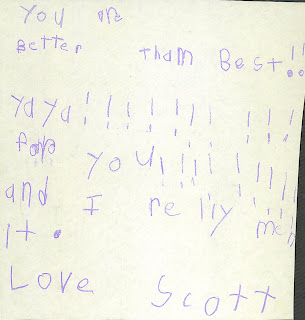 You are
Better tham Best!!
yaya!!!!!!!!!!
you!!!!!!!!!
and I relly me
it.
Love Scott